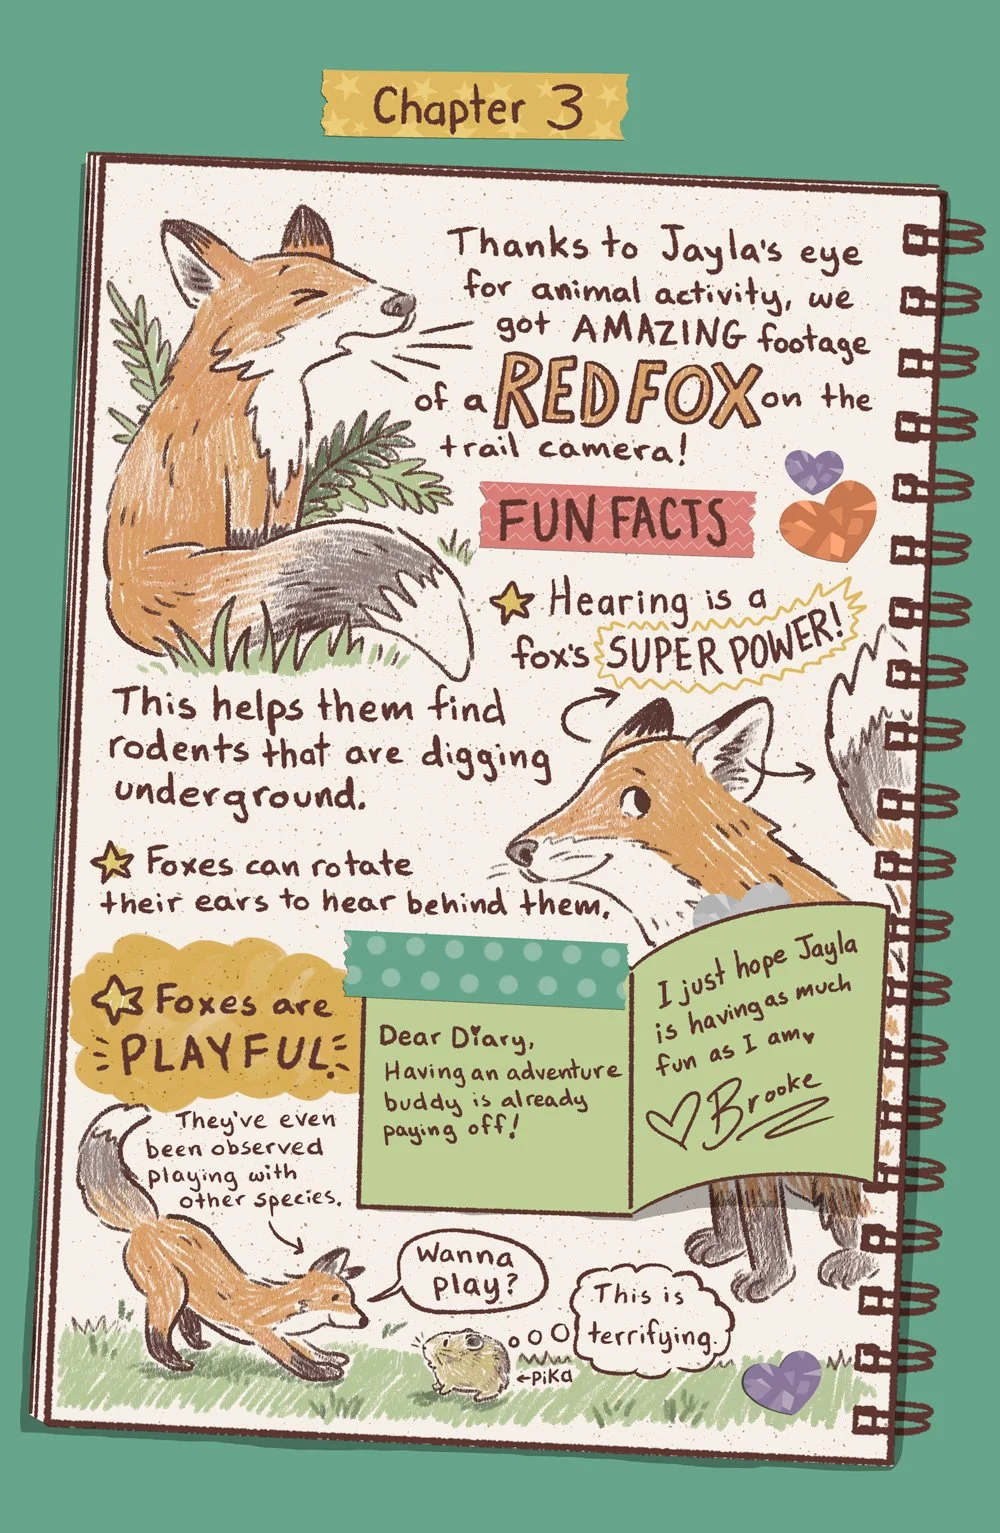 Chapter 3
Thanks to Jayla's eye
for animal activity, we
got AMAZING footage
of a RED FOX on the
trail camera!
FUN FACTS
Hearing is a
fox's SUPER POWER!
This helps them find
rodents that are digging
underground.
Foxes can rotate
their ears to hear behind them.
Foxes are
PLAYFUL.
They've even
been observed
playing with
other species.
Dear Diary,
Having an adventure
buddy is already
paying off!
I just hope Jayla
is having as much
fun as I am
Brooke
Wanna
play?
This is
terrifying.
←pika